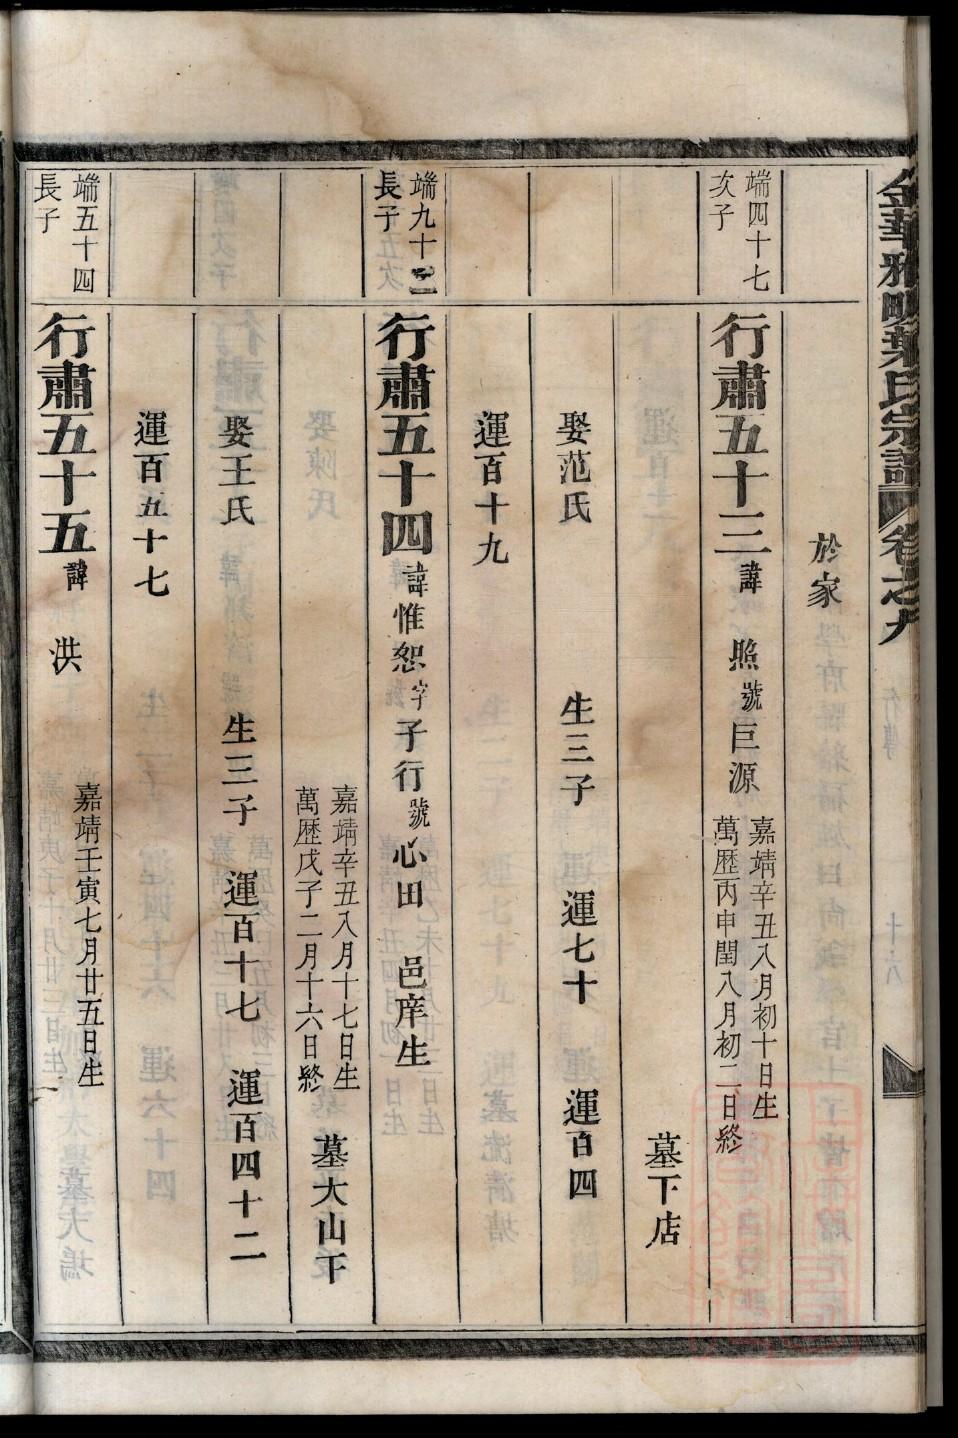 金華雅畈葉氏宗譜 卷之九
於家
端四十七
次子
行肅五十三諱 照號巨源
嘉靖辛丑入月初十日生
萬歷丙申閏八月初二日終
墓下店
娶范氏 生三子 運七十 運百四
運百十九
端九十
長子
行肅五十四諱惟恕字子行號心田 邑庠生
嘉靖辛丑入月十七日生
萬歷戊子二月十六日終
墓大山下
娶王氏 生三子 運百十七 運百四十二
運百五十七
端五十四
長子
行肅五十五諱 洪
嘉靖壬寅七月廿五日生